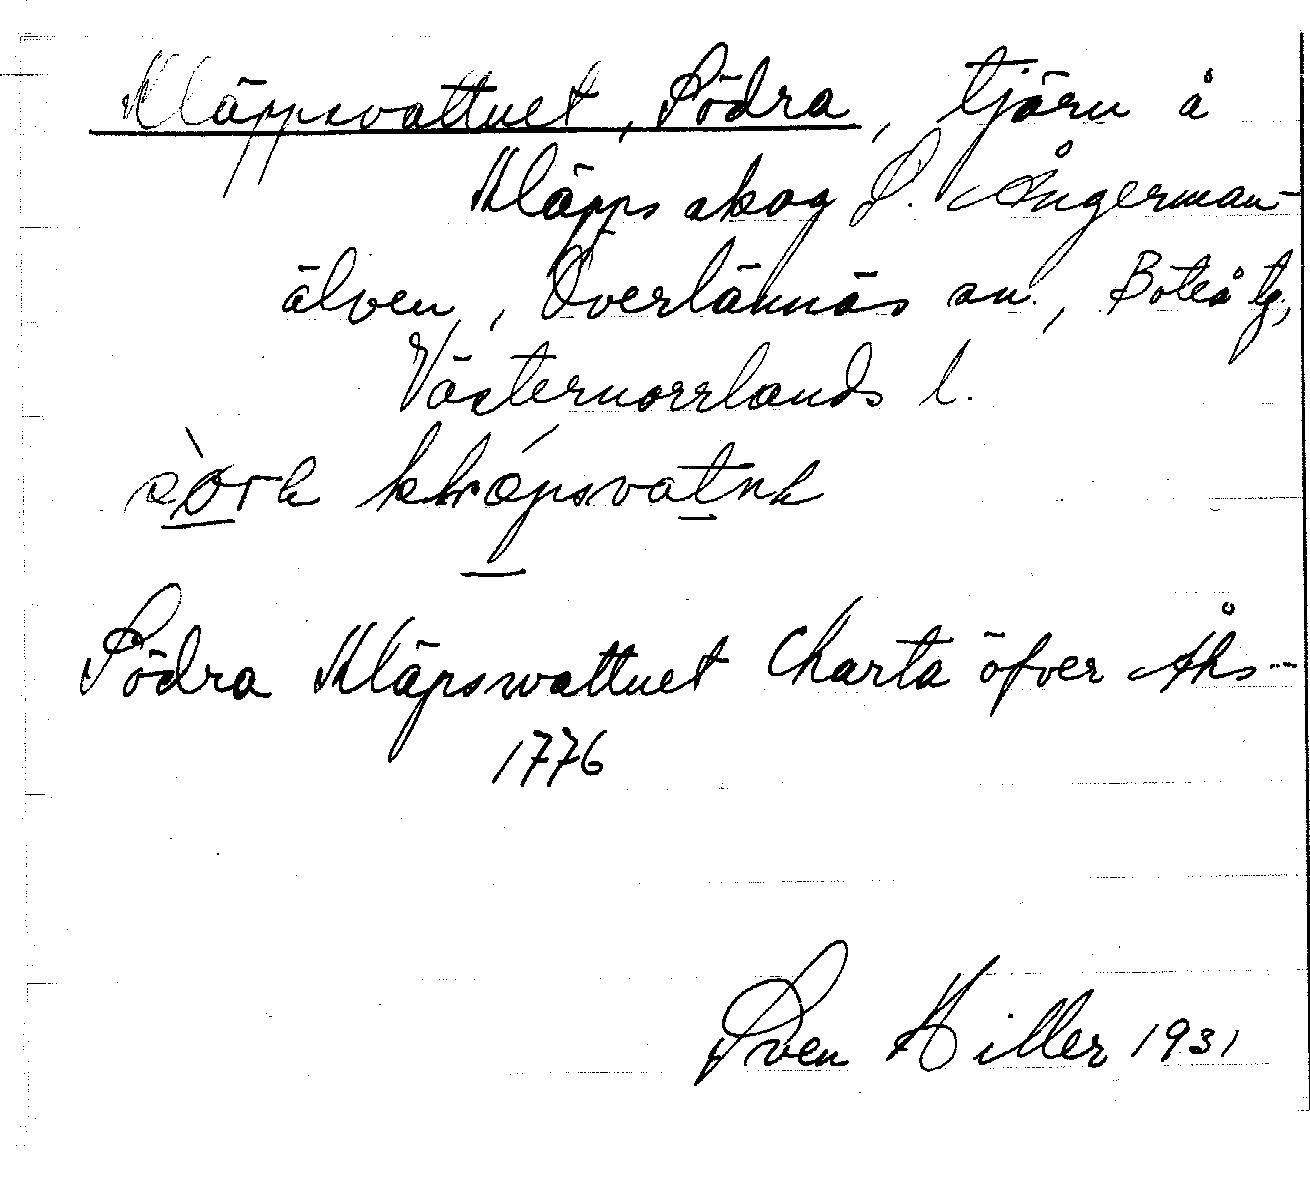 Kläppsvattnet, Södra, tjärn å
Kläpps skog S. Ångerman-
älven, Överlännäs sn., Boteå tg,
Västernorrlands l.
Södra Kläpsvattnet Charta öfver Åks--
1776
Sven Hiller 1931